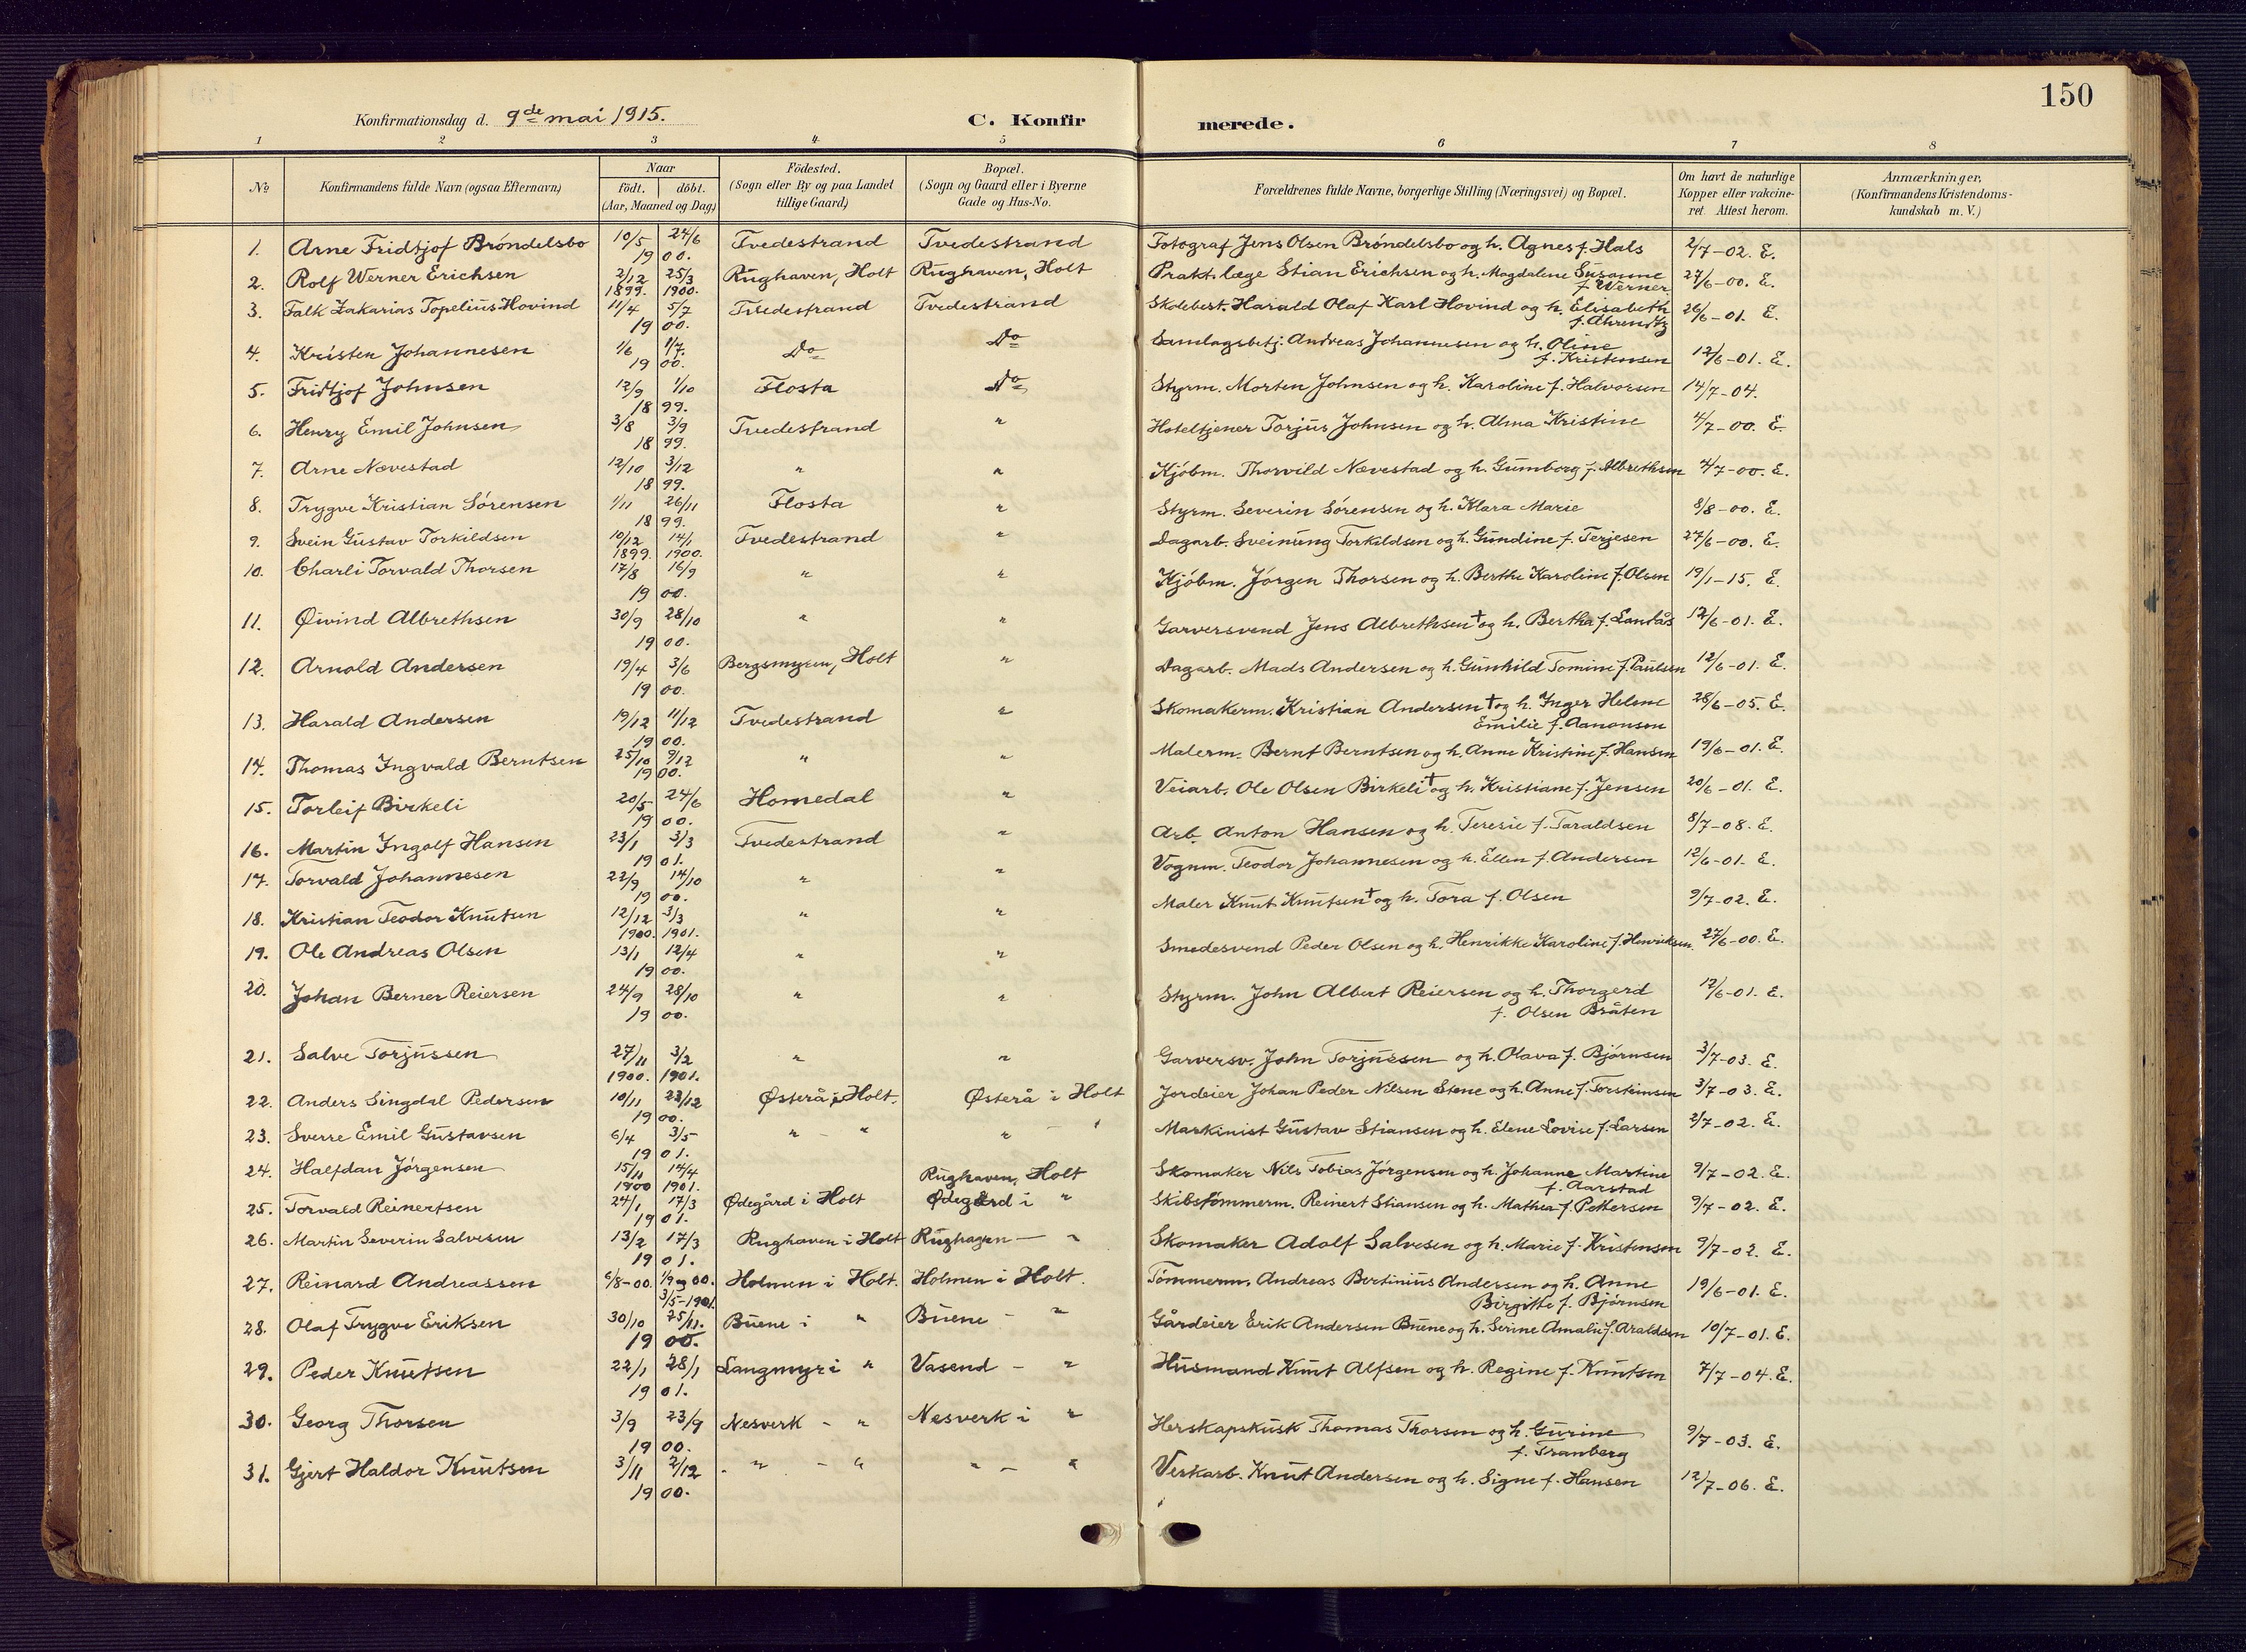 150
Konfirmationsdag d. 9de mai 1915. C. Konfir merede.
1 2 3 4 5 6 7 8
No Konfirmandens fulde Navn (ogsaa Efternavn) Naar födt. döbt. (Aar, Maaned og Dag.) Födested. (Sogn eller By og paa Landet tillige Gaard) Bopæl. (Sogn og Gaard eller i Byerne Gade og Hus-No. Forældrenes fulde Navne, borgerlige Stilling (Næringsvei) og Bopæl. Om havt de naturlige Kopper eller vakcineret. Attest herom. Anmærkninger, (Konfirmandens Kristendomskundskab m. V.)
1. Arne Fridtjof Bröndelsbo 10/5 24/6 1900. Tvedestrand Tvedestrand Fotograf Jens Olsen Bröndelsbo og h. Agnes f. Hals 2/7-02. E.
2. Rolf Werner Erichsen 2/12 1899. 25/3 1900. Rughaven, Holt Rughaven, Holt Prakt. læge Stian Erichsen og h. Magdalene Susanne f. Werner 27/6-00. E.
3. Falk Zakarias Topelius Hovind 11/4 5/7 1900. Tvedestrand Tvedestrand Skolebest. Harald Olaf Karl Hovind og h. Elisabeth f. Ahrendtz 26/6-01. E.
4. Kristen Johannesen 1/6 1/7. 1900. Do Do Samlagsbetj. Andreas Johannesen og h. Oline f. Kristensen 12/6-01. E.
5. Fridtjof Johnsen 12/9 1/10 1899. Flosta Do Styrm. Morten Johnsen og h. Karoline f. Halvorsen 14/7-04.
6. Henry Emil Johnsen 3/8 3/9 1899. Tvedestrand " Hoteltjener Torjus Johnsen og h. Alma Kristine 4/7-00. E.
7. Arne Nævestad 12/10 3/12 1899. " " Kjöbm. Thorvild Nævestad og h. Gumborg f. Albrethsen 4/7-00. E.
8. Trygve Kristian Sörensen 1/11 26/11 1899. Flosta " Styrm. Severin Sörensen og h. Klara Marie 8/8-00. E.
9. Svein Gustav Torkildsen 10/12 1899. 14/1 1900. Tvedestrand " Dagarb. Sveinung Torkildsen og h. Gundine f. Terjesen 27/6-00. E.
10. Charli Torvald Thorsen 17/8 16/9 1900. " " Kjöbm. Jörgen Thorsen og h. Berthe Karoline f. Olsen 19/1-15. E.
11. Øivind Albrethsen 30/9 28/10 1900. " " Garversvend Jens Albrethsen † og h. Bertha f. Landås 12/6-01. E.
12. Arnold Andersen 19/4 3/6 1900. Bergsmyren, Holt " Dagarb. Mads Andersen og h. Gunhild Tomine f. Paulsen 12/6-01. E.
13. Harald Andersen 19/12 11/12 1900. Tvedestrand " Skomakerm. Kristian Andersen † og h. Inger Helene Emilie f. Aanonsen 28/6-05. E.
14. Thomas Ingvald Berntsen 25/10 9/12 1900. " " Malerm. Bernt Berntsen og h. Anne Kristine f. Hansen 19/6-01. E.
15. Torleif Birkeli 20/5 24/6 1900. Homedal " Veiarb. Ole Olsen Birkeli † og h. Kristiane f. Jensen 20/6-01. E.
16. Martin Ingolf Hansen 23/1 3/3 1901. Tvedestrand " Arb. Anton Hansen og h. Teresie f. Taraldsen 8/7-08. E.
17. Torvald Johannesen 22/9 14/10 1900. " " Vognm. Teodor Johannesen og h. Ellen f. Andersen 12/6-01. E.
18. Kristian Teodor Knutsen 12/12 1900. 3/3 1901. " " Maler Knut Knutsen † og h. Tora f. Olsen 9/7-02. E.
19. Ole Andreas Olsen 13/1 12/4 1900. " " Smedesvend Peder Olsen og h. Henrikke Karoline f. Henriksen 27/6-00. E.
20. Johan Berner Reiersen 24/9 28/10 1900. " " Styrm. John Albert Reiersen og h. Thorgerd f. Olsen Bråten 12/6-01. E.
21. Salve Torjussen 27/11 1900. 3/2 1901. " " Garversv. John Torjussen og h. Olava f. Bjørnsen 3/7-03. E.
22. Anders Singdal Pedersen 10/11 23/12 1900. Østerå i Holt. Østerå i Holt Jordeier Johan Peder Nilsen Stene og h. Anne f. Torsteinsen 3/7-03. E.
23. Sverre Emil Gustavsen 6/4 3/5 1901. " - " " - " Maskinist Gustav Stiansen og h. Elene Lovise f. Larsen 2/7-02. E.
24. Halfdan Jörgensen 15/11 1900 14/4 1901. Rughaven, Holt Skomaker Nils Tobias Jörgensen og h. Johanne Martine f. Aarstad 9/7-02. E.
25. Torvald Reinertsen 24/1 17/3 1901. Ødegård i Holt Ødegård i " Skibstömmerm. Reinert Stiansen og h. Mathea f. Pettersen 9/7-02. E.
26. Martin Severin Salvesen 13/2 17/3 1901. Rughaven i Holt Rughagen - " Skomaker Adolf Salvesen og h. Marie f. Kristensen 9/7-02. E.
27. Reinard Andreassen 6/8-00. 1/9 og 00. 3/5-1901. Holmen i Holt. Holmen i Holt. Tömmerm. Andreas Bertinius Andersen og h. Anne Birgitte f. Bjørnsen 19/6-01. E.
28. Olaf Trygve Eriksen 30/10 25/11. 1900. Buene i " Buene - " Gårdeier Erik Andersen Buene og h. Serine Amalie f. Araldsen 10/7-01. E.
29. Peder Knutsen 22/1 28/1 1901. Langmyr i " Vasend - " Husmand Knut Alfsen og h. Regine f. Knutsen 7/7-04. E.
30. Georg Thorsen 3/9 23/9 1900. Nesverk - " Nesverk i " Herskapskusk Thomas Thorsen og h. Gurine f. Tranberg 9/7-03. E.
31. Gjert Haldor Knutsen 3/11 2/12 1900. " - " " - " Verkarb. Knut Andersen og h. Signe f. Hansen 12/7-06. E.